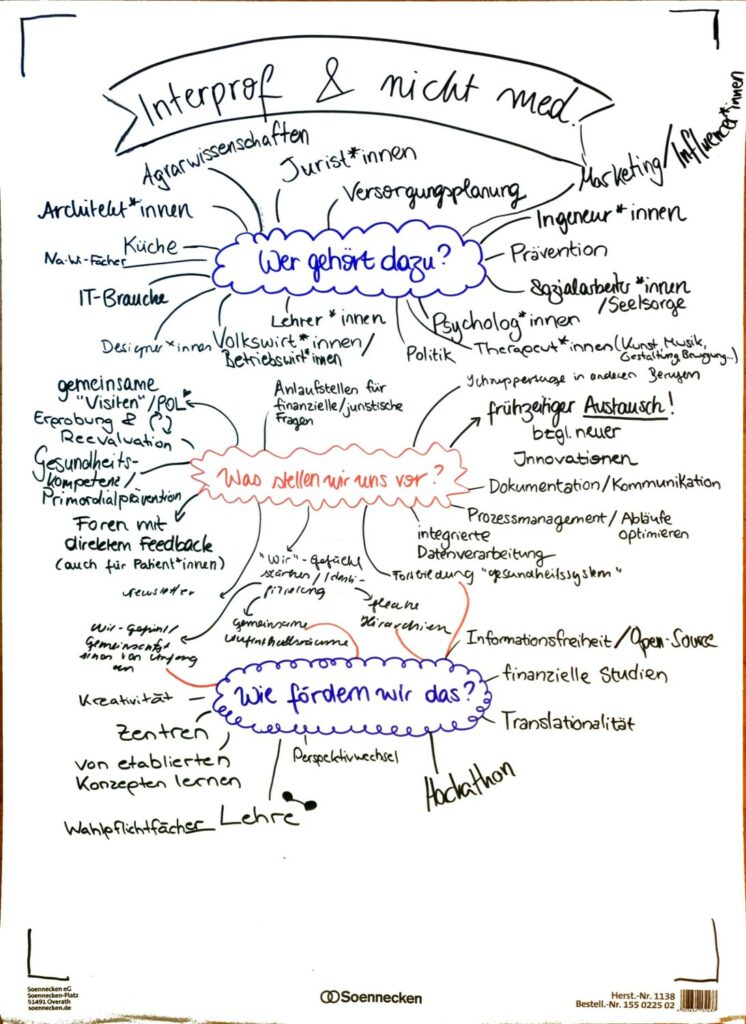 Interprof & nicht med.
Agrarwissenschaften
Jurist*innen
Versorgungsplanung
Marketing/Influencer*innen
Architekt*innen
Ingeneur*innen
Küche
Na-Wi-Fächer
Wer gehört dazu?
Prävention
IT-Branche
Sozialarbeiter*innen
/Seelsorge
Designer*innen
Volkswirt*innen/
Betriebswirt*innen
Lehrer*innen
Politik
Psycholog*innen
Therapeut*innen (Kunst, Musik,
Gestaltung, Bewegung...)
gemeinsame
"Visiten"/POL
Erprobung &
Reevaluation
Anlaufstellen für
finanzielle/juristische
Fragen
Schnuppertage in anderen Berufen
frühzeitiger Austausch!
bzgl. neuer
Innovationen
Gesundheits-
kompetenz/
Primordialprävention
Was stellen wir uns vor?
Dokumentation/Kommunikation
Prozessmanagement/Abläufe
optimieren
Foren mit
direktem Feedback
(auch für Patient*innen)
integrierte
Datenverarbeitung
Newsletter
"Wir"-Gefühl
stärken/Identi-
fizierung
Fortbildung "gesundheitssystem"
Wir-Gefühl/
Gemeinschafts
sinn von Anfang
an
gemeinsame
Aufenthaltsräume
flache
Hierarchien
Informationsfreiheit/Open-Source
Wie fördern wir das?
finanzielle Studien
Kreativität
Translationalität
Zentren
von etablierten
Konzepten lernen
Perspektivwechsel
Hackathon
Wahlpflichtfächer Lehre
Soennecken eG
Soennecken-Platz
51491 Overath
soennecken.de
Soennecken
Herst.-Nr. 1138
Bestell.-Nr. 155 0225 02